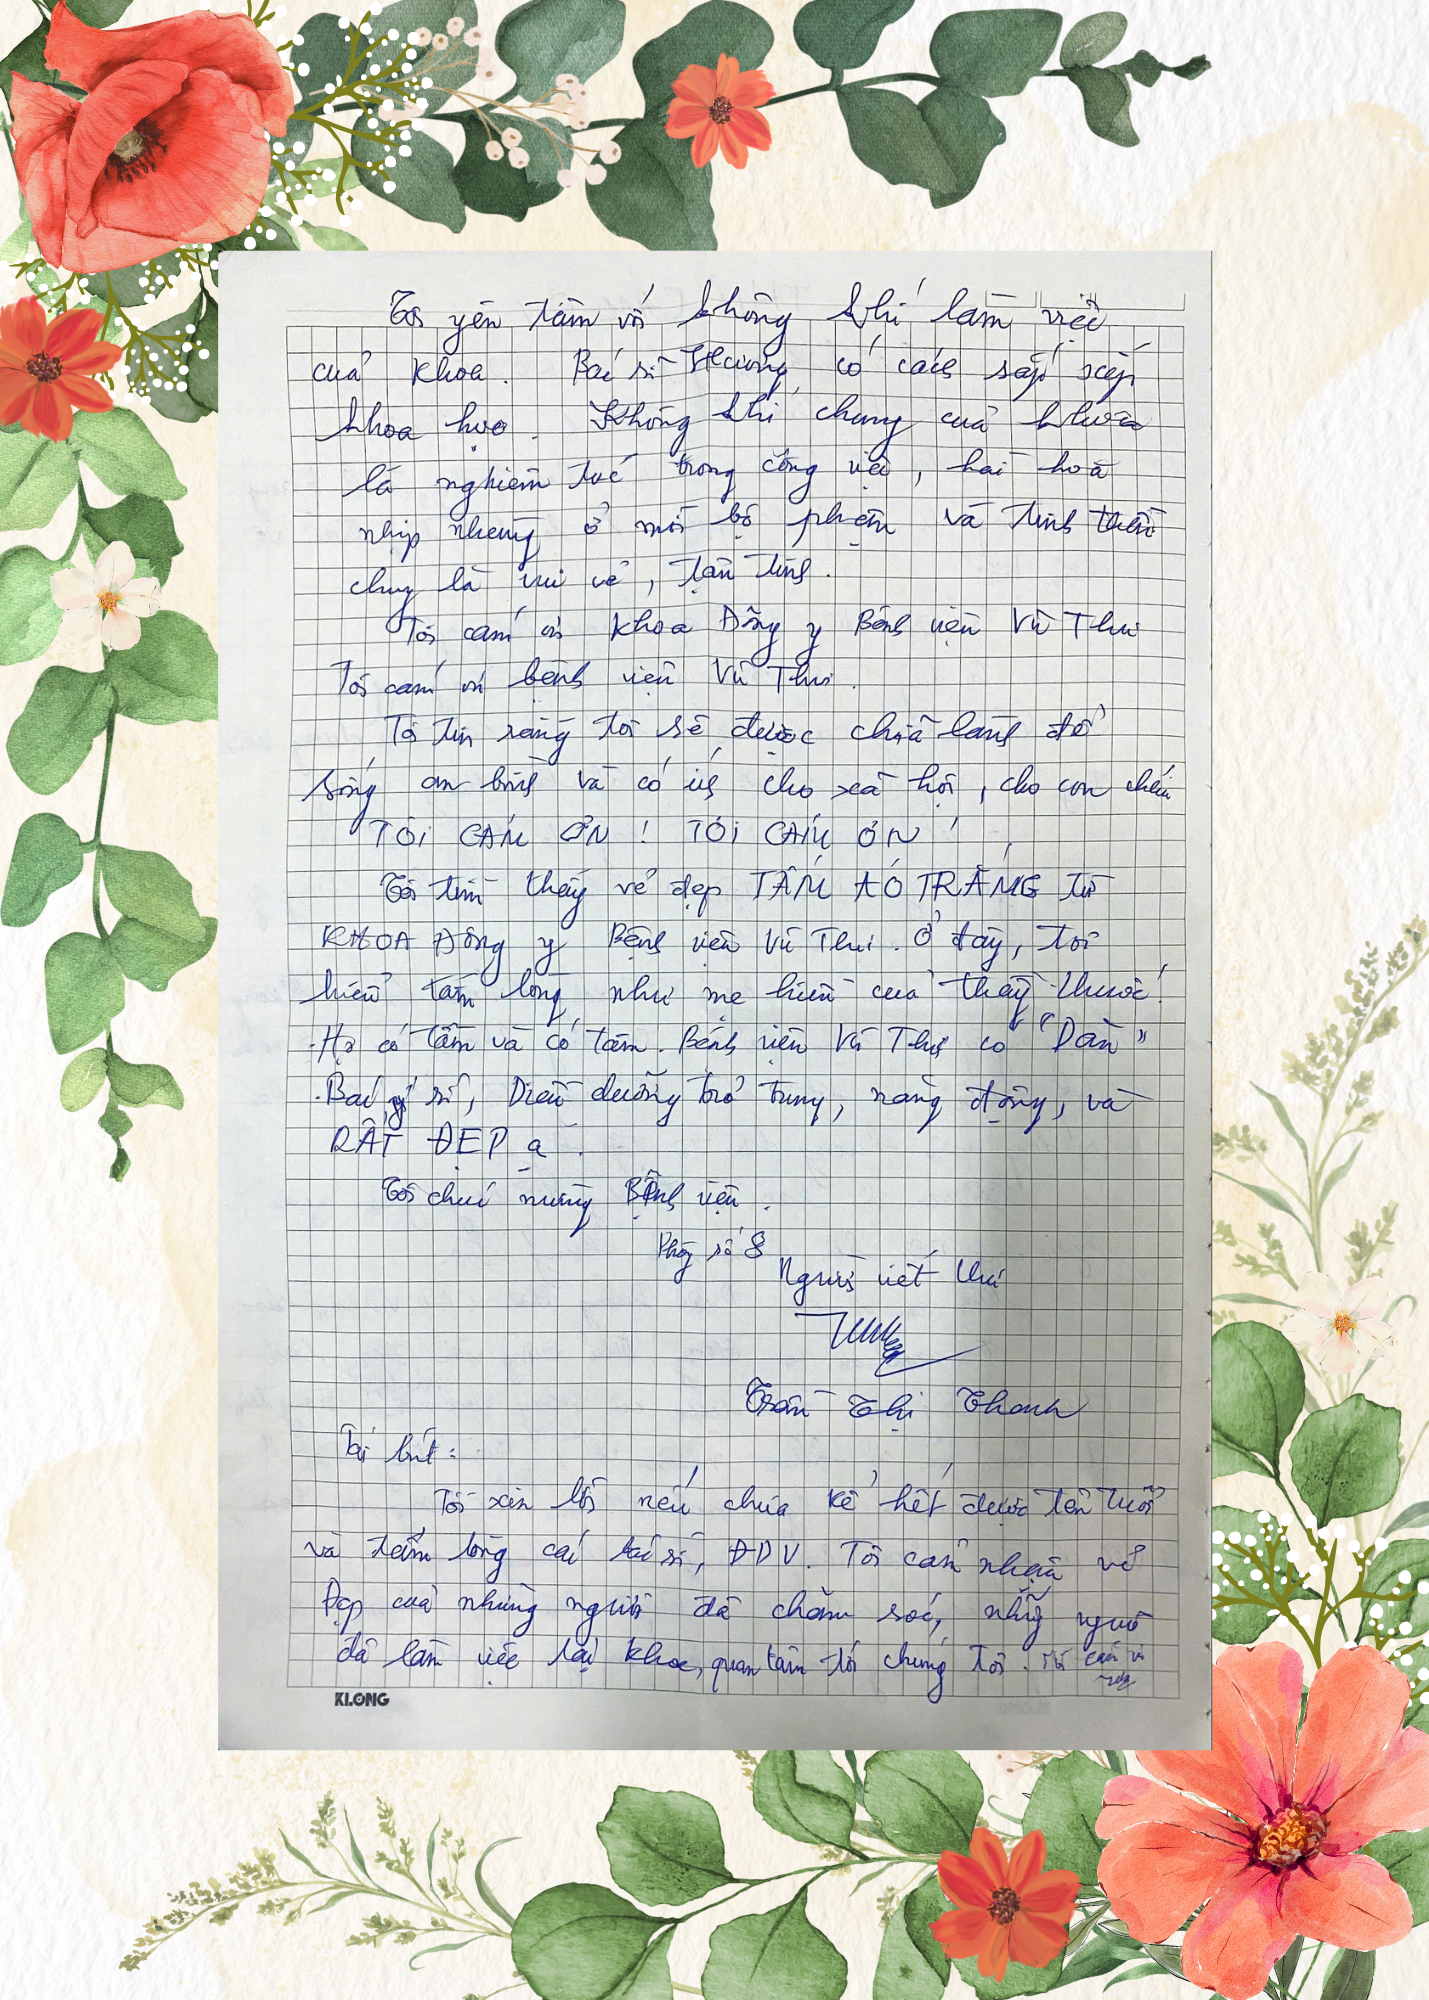 Tôi yên tâm với không khí làm việc
của khoa. Bác sĩ Hương có cách sắp xếp
khoa học. Không khí chung của khoa
là nghiêm túc trong công việc, hài hoà
nhịp nhàng ở mỗi bộ phận và tinh thần
chung là vui vẻ, tận tình.
Tôi cảm ơn khoa Đông y Bệnh viện Vũ Thư
Tôi cảm ơn bệnh viện Vũ Thư.
Tôi tin rằng tôi sẽ được chữa lành để
sống an bình và có ích cho xã hội, cho con cháu
TÔI CẢM ƠN! TÔI CẢM ƠN!
Tôi tìm thấy vẻ đẹp TẤM ÁO TRẮNG từ
KHOA Đông y Bệnh viện Vũ Thư. Ở đây, tôi
hiểu tấm lòng như mẹ hiền của thầy thuốc!
Họ có tầm và có tâm. Bệnh viện Vũ Thư có "Dàn"
Bác, y sĩ, Điều dưỡng trẻ trung, năng động, và
RẤT ĐẸP ạ.
Tôi chúc mừng Bệnh viện.
Phòng số 8
Người viết thư
Trần Thị Thanh
Tái bút:
Tôi xin lỗi nếu chưa kể hết được tên tuổi
và tấm lòng các bác sĩ, ĐDV. Tôi cảm nhận vẻ
Đẹp của những người đã chăm sóc, những người
đã làm việc tại khoa, quan tâm tới chúng tôi. Tôi cảm ơn
KLONG